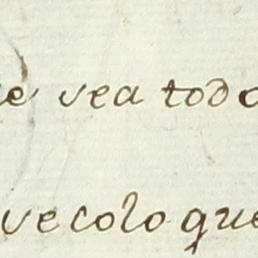 é vea todo
vecolo que